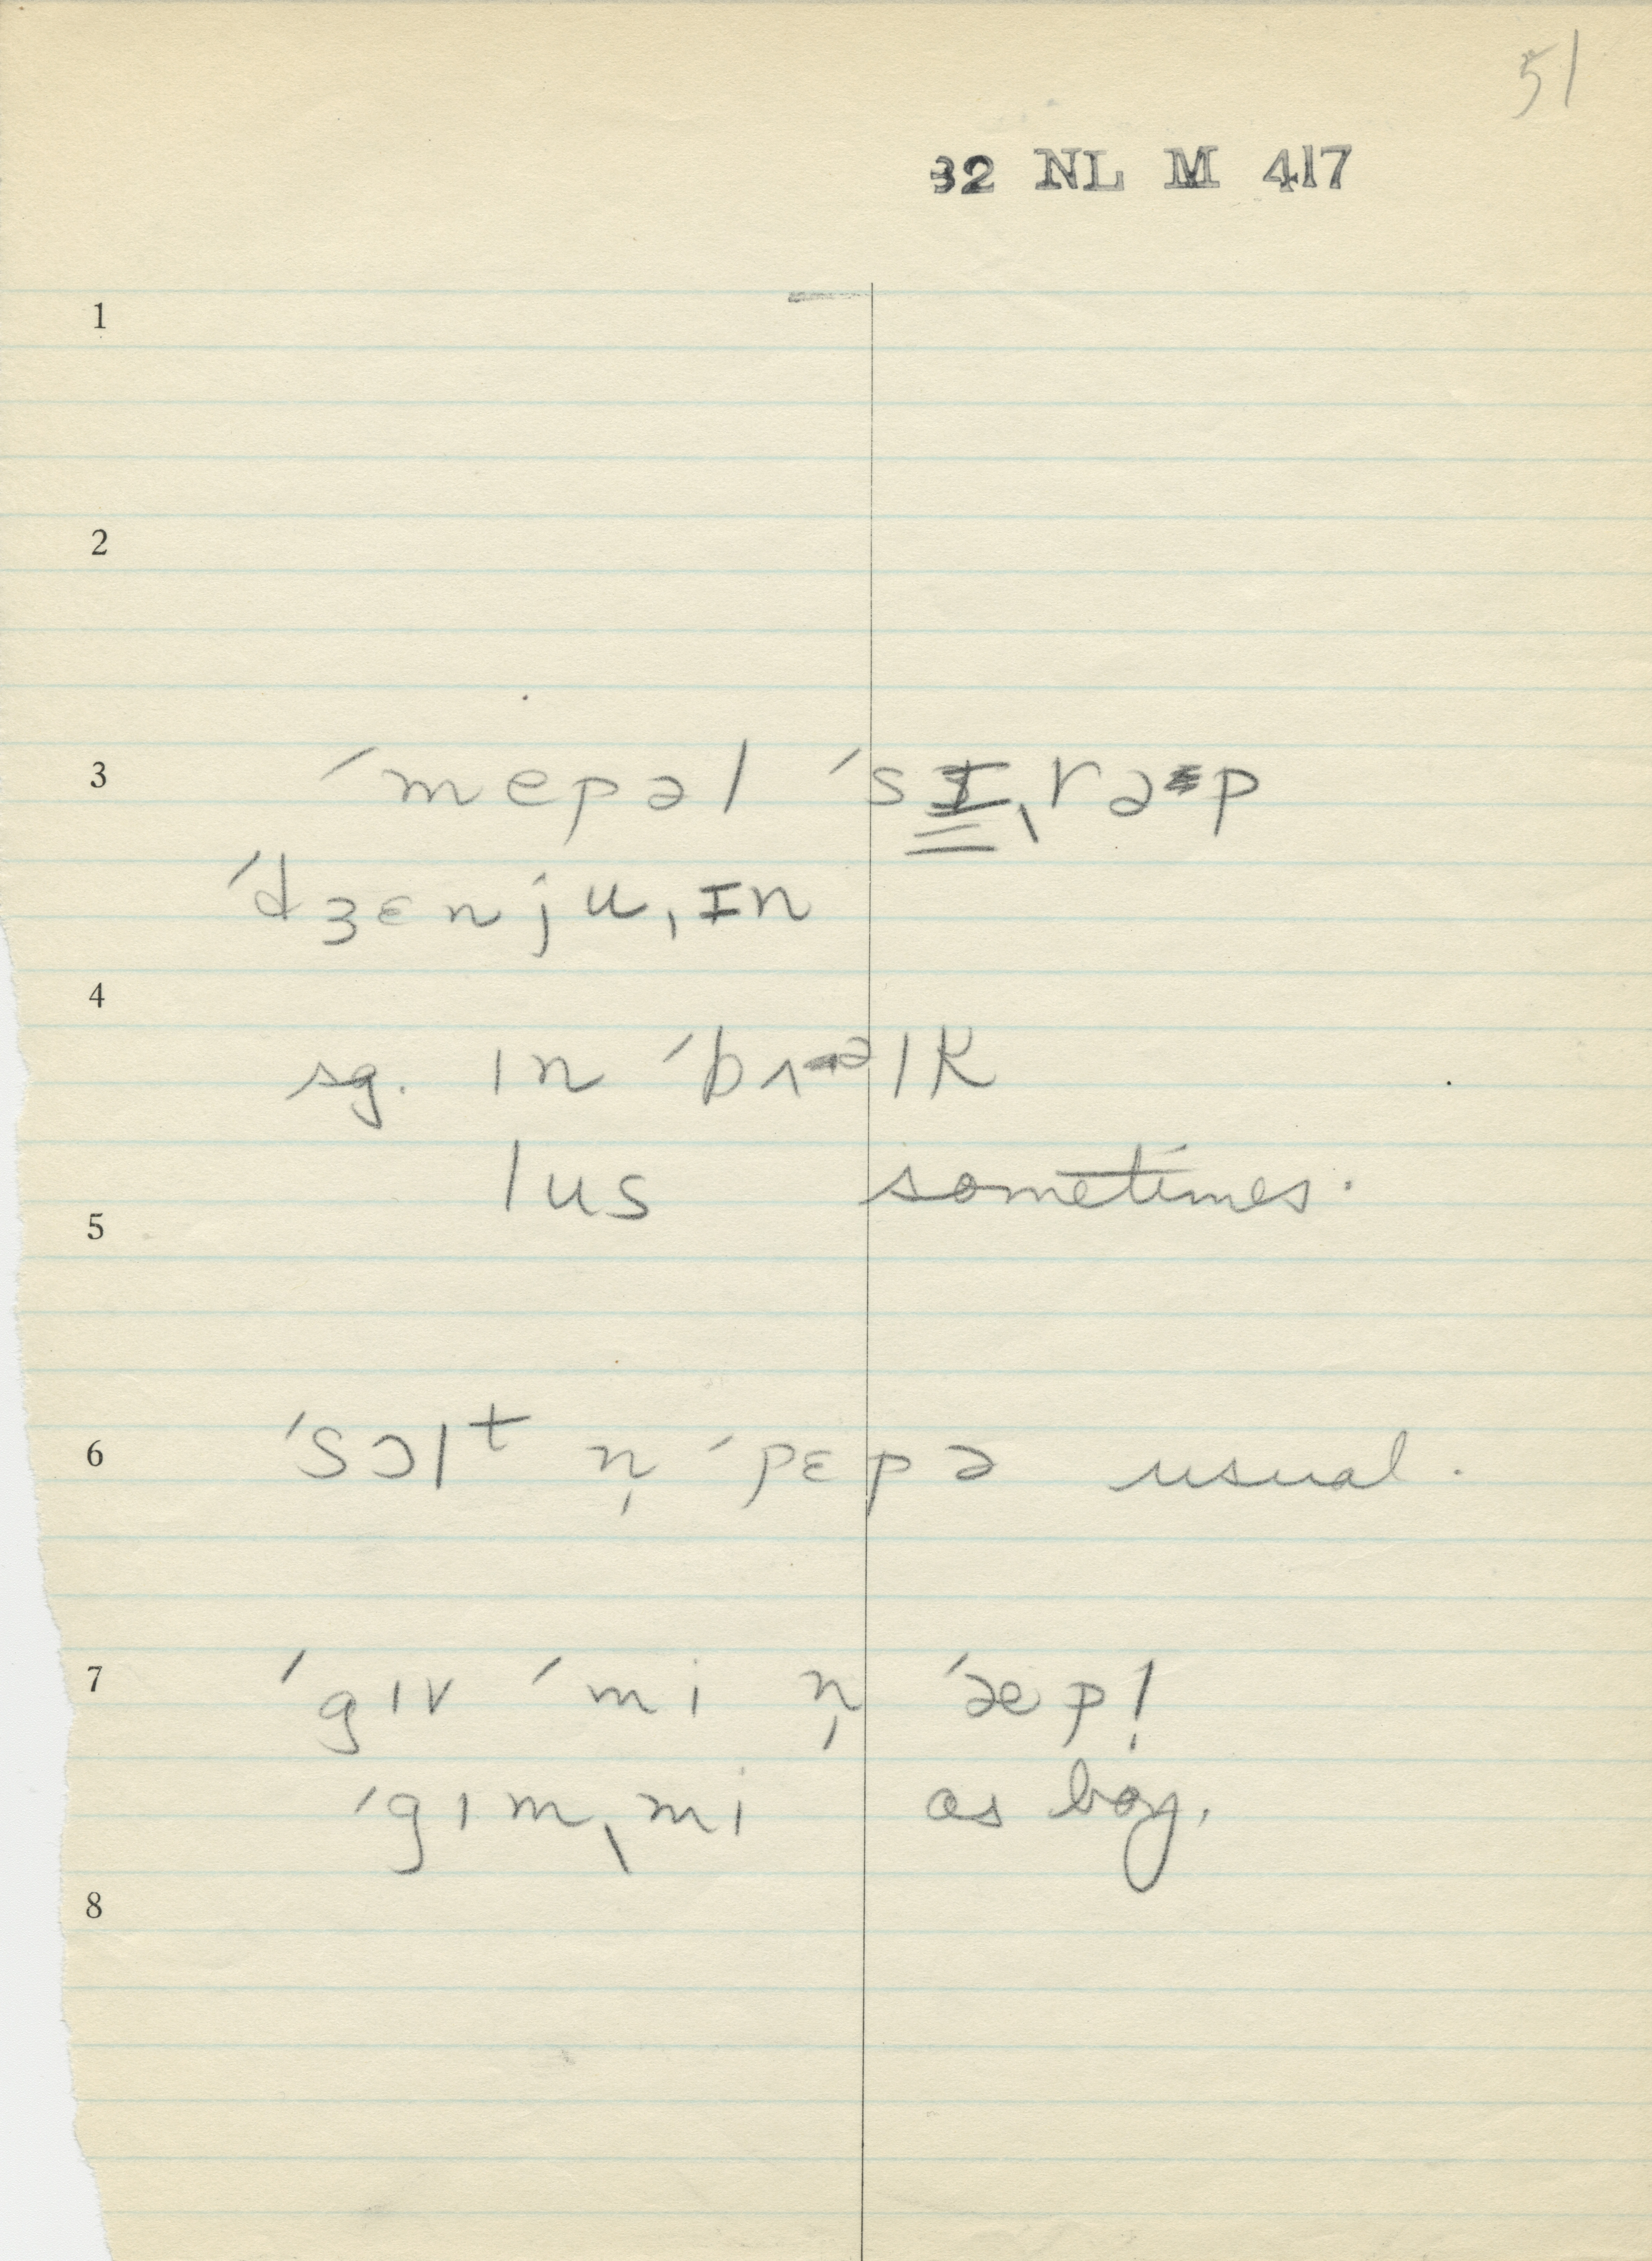 51
32 NL M 417
1
2
3 ˈmepəl ˈsɪˌrəp
ˈdʒɛnjuˌɪn
4
sg. ɪn ˈbʌəlk
lus sometimes.
5
6 ˈsɔlᵗ n̩ ˈpɛpə usual.
7 ˈgɪv ˈmi n̩ ˈæpl̩
ˈgɪmˌmi as boy.
8